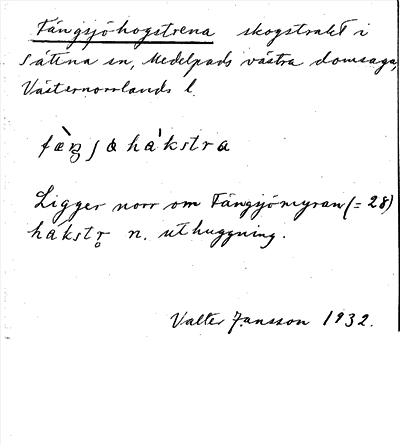 Fängsjöhogstrena skogstrakt i
Sättna sn, Medelpads västra domsaga,
Västernorrlands l.
fæ̀ŋʃɑ hákstra
Ligger norr om Fängsjömyran (= 28)
hákstr̥ n. uthuggning.
Valter Jansson 1932.